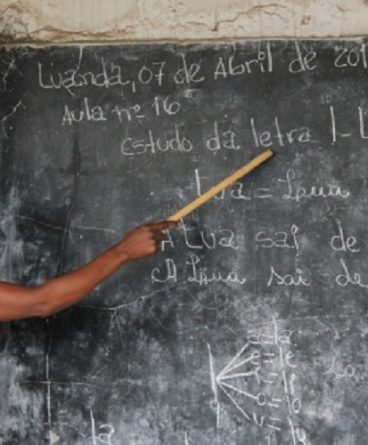 Luanda, 07 de Abril de 201
Aula nº 16
Estudo da letra l-L
Lua = Lua
A Lua sai de
A Lua sai de
a = la
e = le
i = li
o = lo
u = lu
l
la